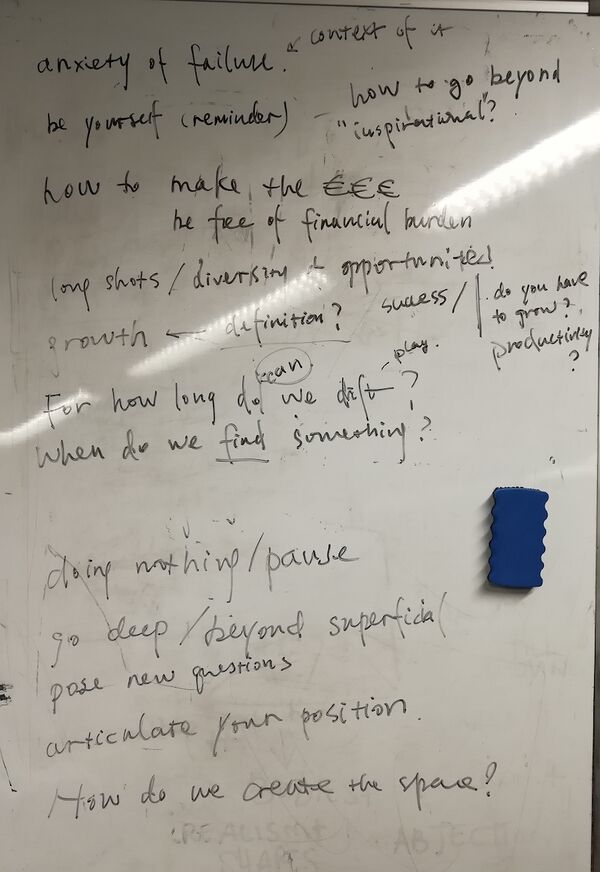 anxiety of failure. context of it
be yourself (reminder) - how to go beyond
"inspirational"?
how to make the €€€
be free of financial burden
long shots / diversity of opportunities!
growth ← definition? sucess / do you have
to grow?
productivity
?
can play.
For how long do we drift?
When do we find something?
doing nothing/pause
go deep / beyond superficial
pose new questions
articulate your position.
How do we create the space?
REALISM
SHAPES